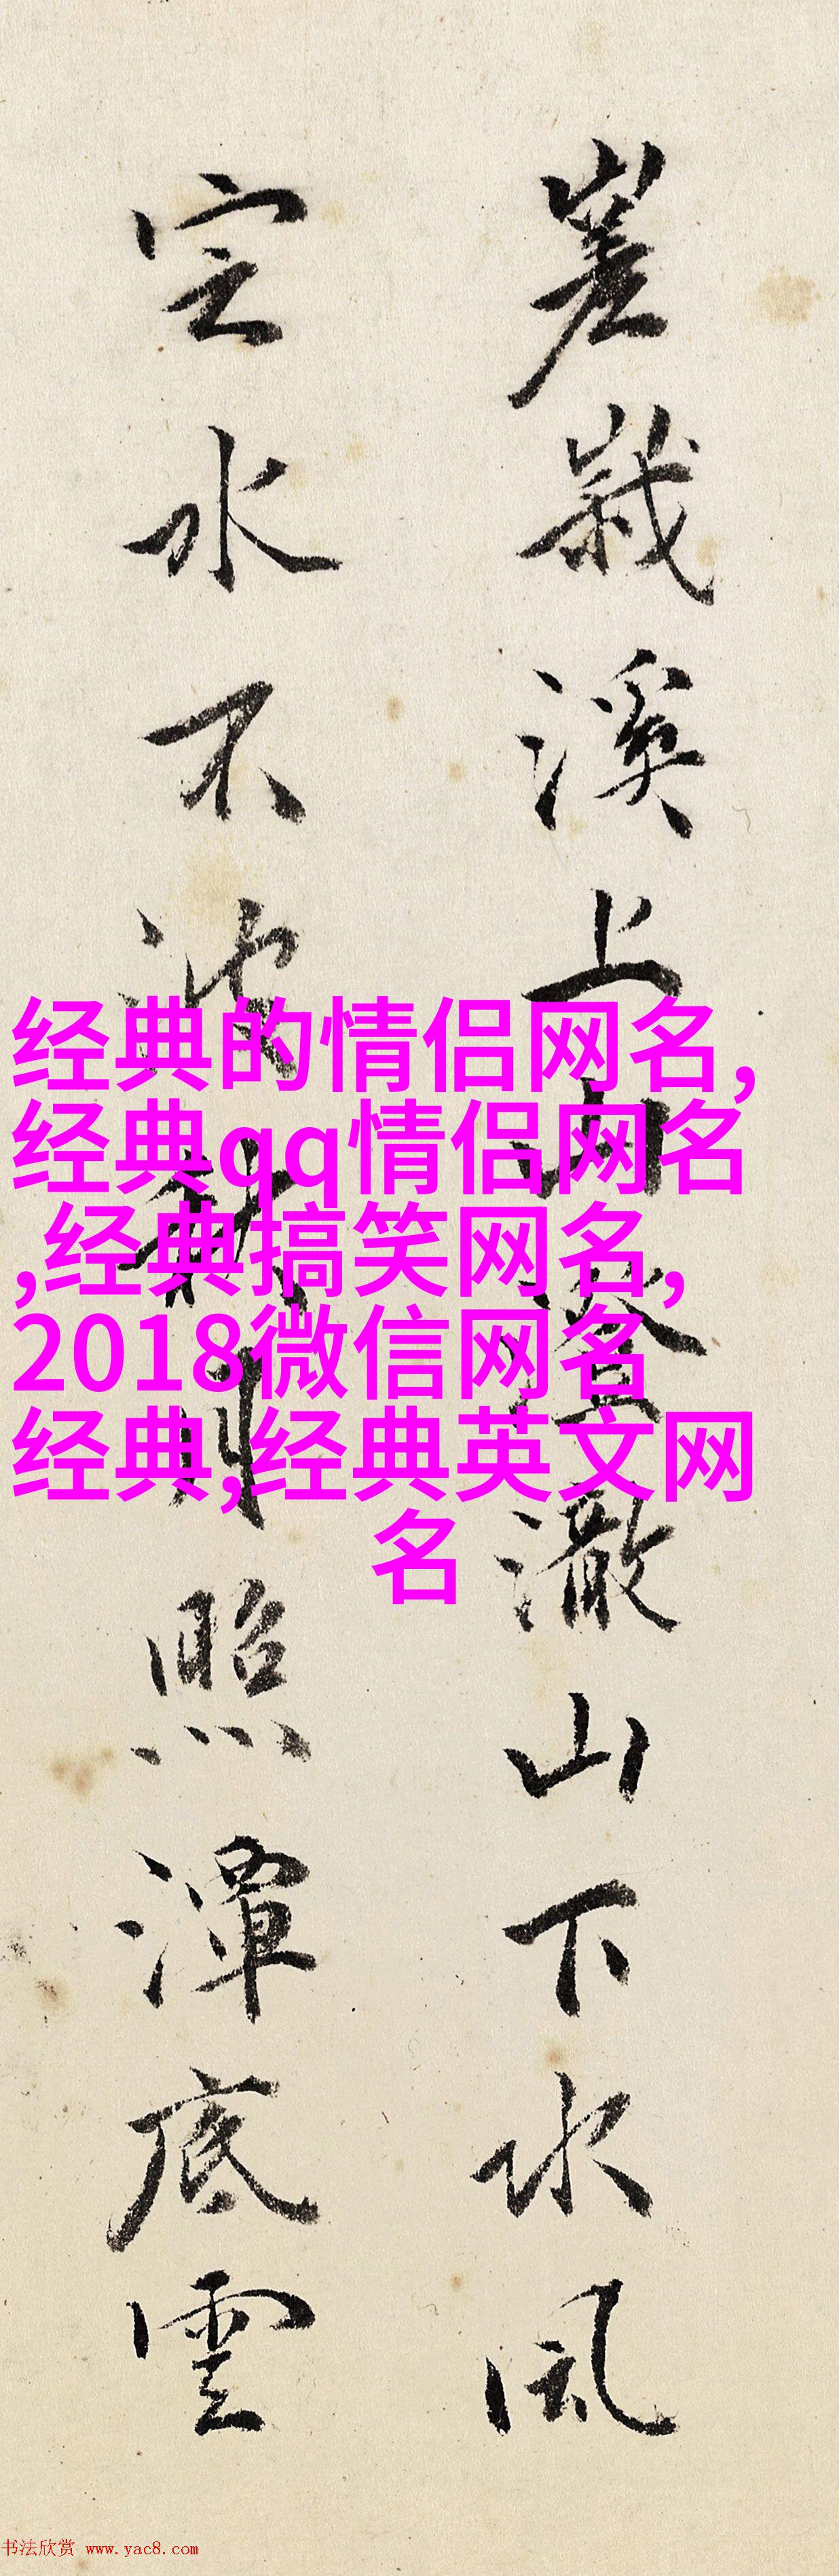 嵳峩溪上山澄澈山下水風
定水不波秋月照潭底雲
经典的情侣网名,
经典qq情侣网名
,经典搞笑网名,
2018微信网名
经典,经典英文网
名
书法欣赏 www.yac8.com